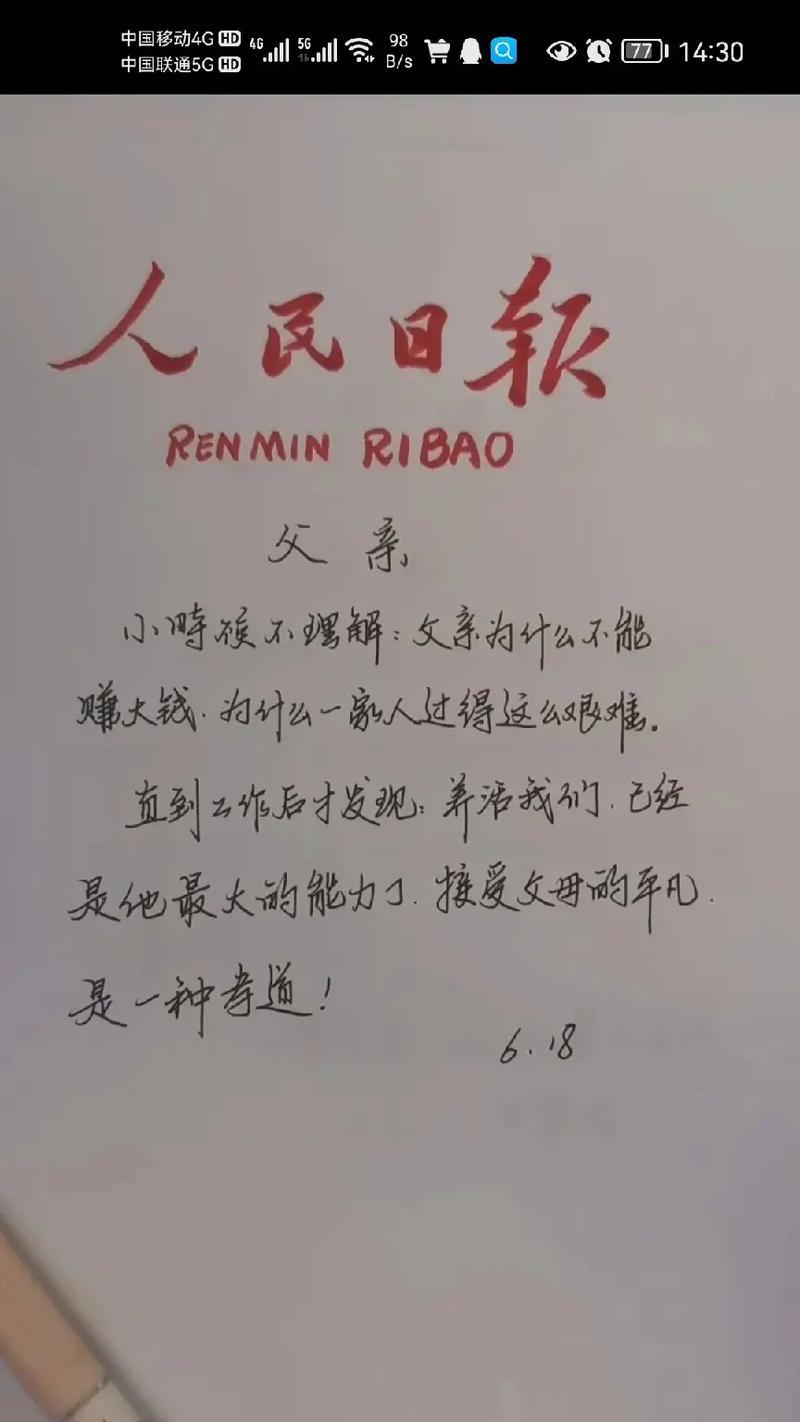 中国移动4G HD 4G 5G 98 77 14:30
中国联通5G HD B/s
人民日报
RENMIN RIBAO
父亲
小時候不理解:父亲为什么不能
赚大钱.为什么一家人过得这么艰难。
直到工作后才发现:养活我们.已经
是他最大的能力了.接受父母的平凡.
是一种孝道!
6.18